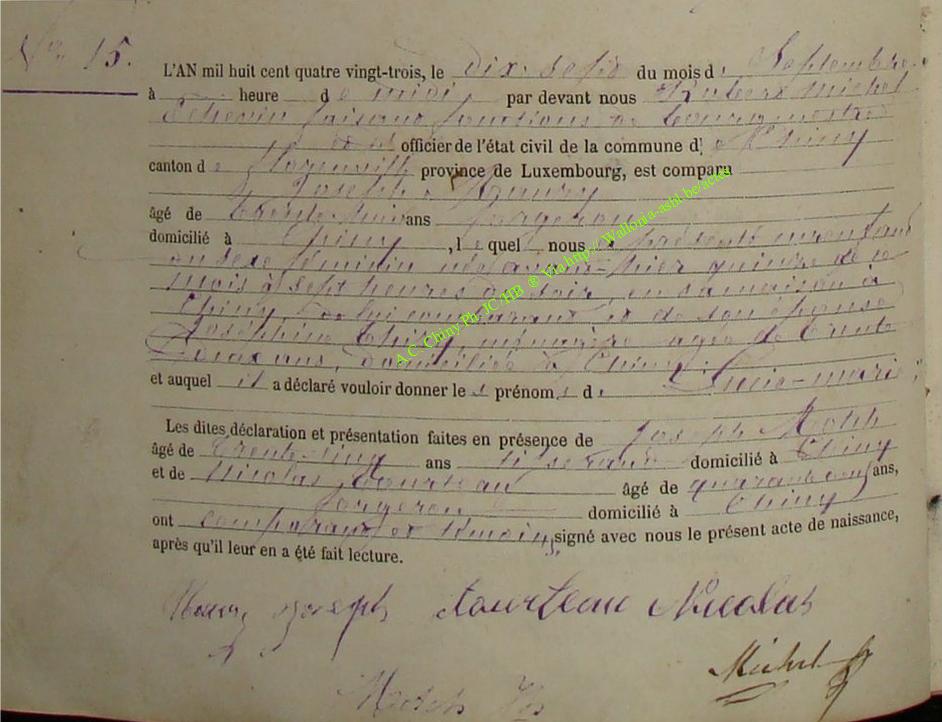 N° 15.
L'AN mil huit cent quatre vingt-trois, le dix-sept du mois de Septembre
à heure de midi, par devant nous Michel
Echevin faisant fonctions de bourgmestre
officier de l'état civil de la commune de Chiny
canton de Florenville province de Luxembourg, est comparu
Joseph
âgé de trente- ans forgeron
domicilié à Chiny, lequel nous a présenté un enfant
du sexe féminin né avant-hier quinze de ce
mois à sept heures du soir, en sa maison à
Chiny, de lui comparant et de son épouse
Joséphine ménagère, âgée de trente
deux ans, domiciliée à Chiny;
et auquel il a déclaré vouloir donner les prénoms de Lucie-marie;
Les dites déclaration et présentation faites en présence de Joseph
âgé de trente-cinq ans tisserand domicilié à Chiny
et de Nicolas Tourteau âgé de quarante ans,
forgeron domicilié à Chiny
ont comparant et témoins, signé avec nous le présent acte de naissance,
après qu'il leur en a été fait lecture.
Joseph tourteau Nicolas
Michel
A.C. Chiny Ph. JC HB ® Via http://Wallonia-asbl.be/actes